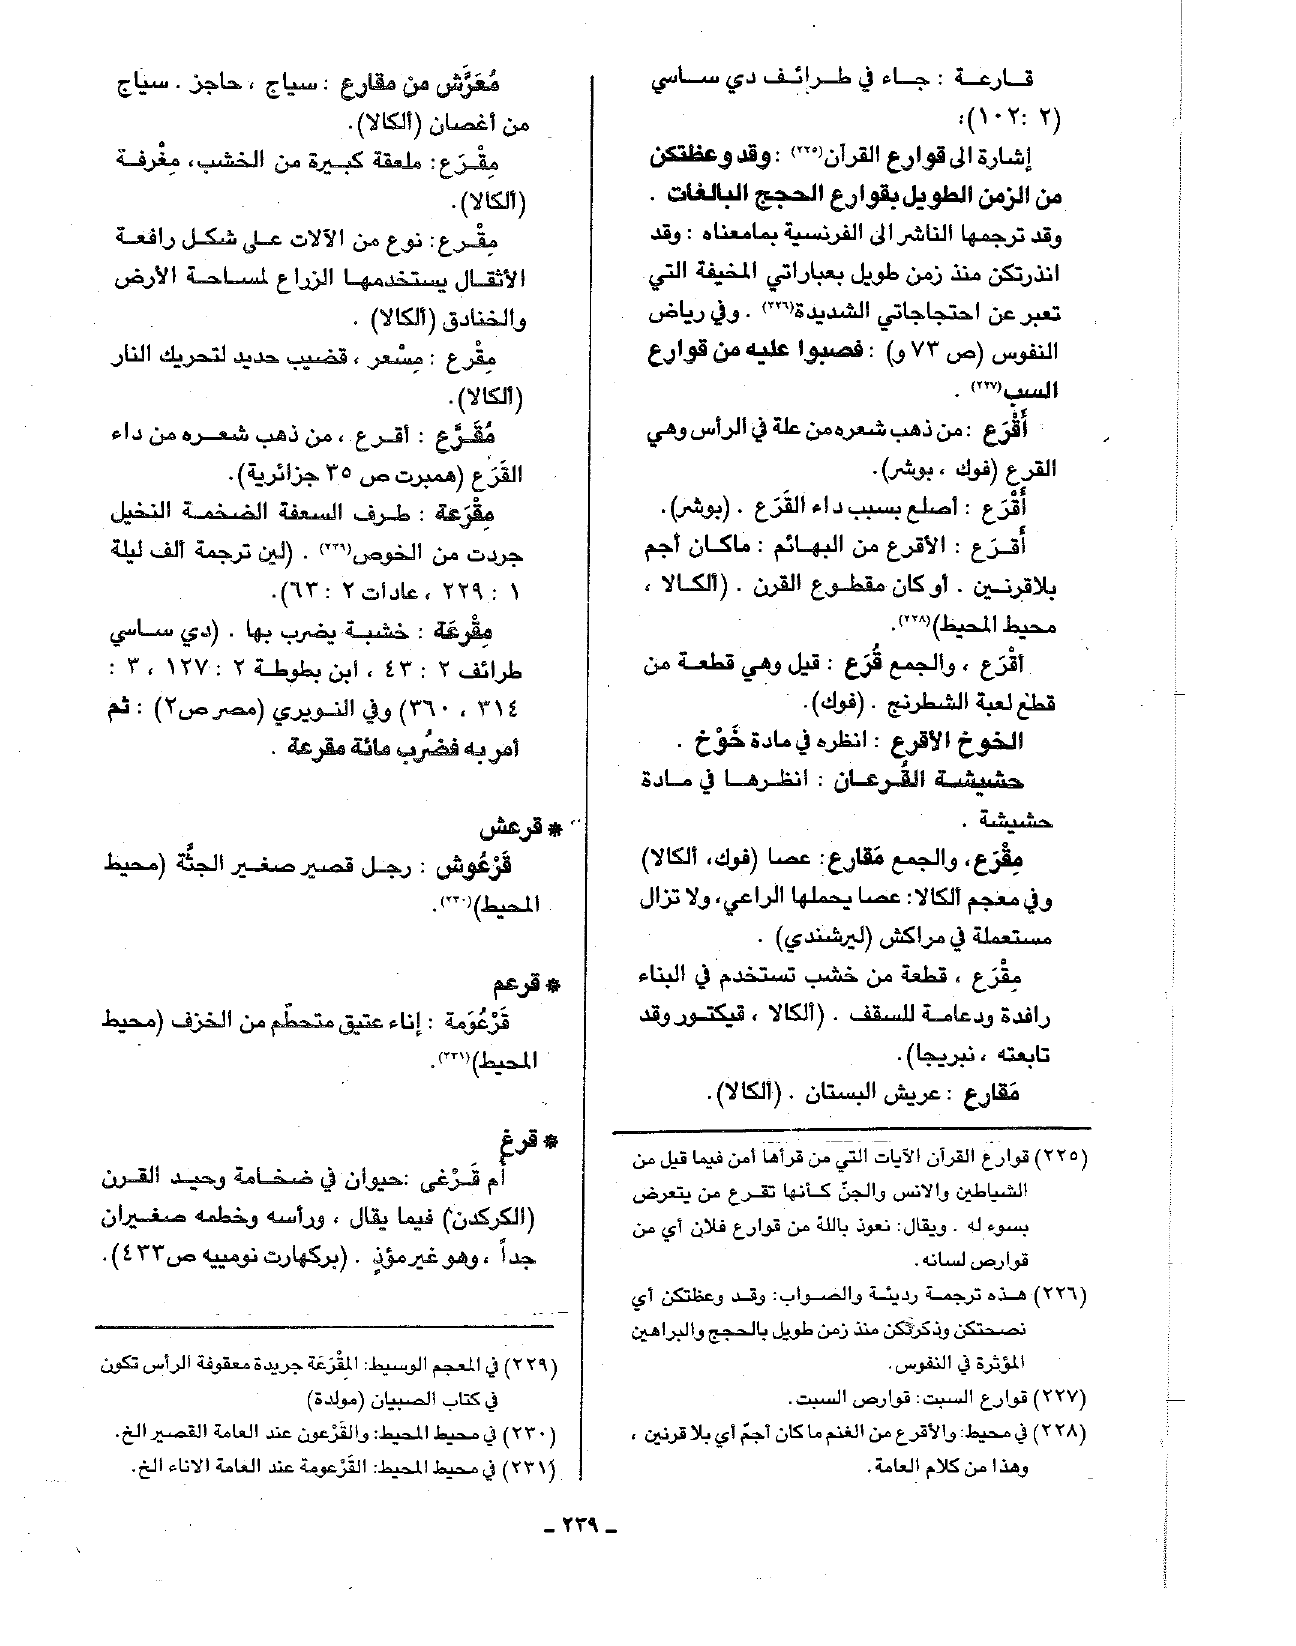 قارعة : جاء في طرائف دي ساسي
(٢ : ١٠٢):
إشارة الى قوارع القرآن(٢٢٥) : وقد وعظتكن
من الزمن الطويل بقوارع الحجج البالغات .
وقد ترجمها الناشر الى الفرنسية بمامعناه : وقد
انذرتكن منذ زمن طويل بعباراتي المخيفة التي
تعبر عن احتجاجاتي الشديدة(٢٢٦) . وفي رياض
النفوس (ص ٧٣ و) : فصبوا عليه من قوارع
السب(٢٢٧) .
أَقْرَع : من ذهب شعره من علة في الرأس وهي
القرع (فوك ، بوشر).
أَقْرَع : أصلع بسبب داء القَرَع . (بوشر).
أَقرَع : الأقرع من البهائم : ماكان أجم
بلاقرنين . أو كان مقطوع القرن . (ألكالا ،
محيط المحيط)(٢٢٨).
أقْرَع ، والجمع قُرَع : قيل وهي قطعة من
قطع لعبة الشطرنج . (فوك).
الخوخ الأقرع : انظره في مادة خَوْخ .
حشيشة القُرعان : انظرها في مادة
حشيشة .
مِقْرَع، والجمع مَقارع: عصا (فوك، ألكالا)
وفي معجم ألكالا: عصا يحملها الراعي، ولا تزال
مستعملة في مراكش (ليرشندي) .
مِقْرَع ، قطعة من خشب تستخدم في البناء
رافدة ودعامة للسقف . (ألكالا ، فيكتور وقد
تابعته ، نبريجا).
مَقارع : عريش البستان . (ألكالا).
(٢٢٥) قوارع القرآن الآيات التي من قرأها أمن فيما قيل من
الشياطين والانس والجنّ كأنها تقرع من يتعرض
بسوء له . ويقال: نعوذ بالله من قوارع فلان أي من
قوارص لسانه.
(٢٢٦) هذه ترجمة رديئة والصواب: وقد وعظتكن أي
نصحتكن وذكرتكن منذ زمن طويل بالحجج والبراهين
المؤثرة في النفوس.
(٢٢٧) قوارع السبت: قوارص السبت.
(٢٢٨) في محيط: والأقرع من الغنم ما كان أجمّ أي بلا قرنين ،
وهذا من كلام العامة.
مُعَرَّش من مقارع : سياج ، حاجز . سياج
من أغصان (ألكالا).
مِقْرَع: ملعقة كبيرة من الخشب، مغْرفة
(ألكالا).
مِقْرع: نوع من الآلات على شكل رافعة
الأثقال يستخدمها الزراع لمساحة الأرض
والخنادق (ألكالا) .
مِقْرع : مِسْعر ، قضيب حديد لتحريك النار
(ألكالا).
مُقَرَّع : أقرع ، من ذهب شعره من داء
القَرَع (همبرت ص ٣٥ جزائرية).
مِقْرَعة : طرف السعفة الضخمة النخيل
جردت من الخوص(٢٢٩) . (لين ترجمة ألف ليلة
١ : ٢٢٩ ، عادات ٢ : ٦٣).
مِقْرعَة : خشبة يضرب بها . (دي ساسي
طرائف ٢ : ٤٣ ، ابن بطوطة ٢ : ١٢٧ ، ٣ :
٣١٤ ، ٣٦٠) وفي النويري (مصر ص٢) : ثم
أمر به فضُرب مائة مقرعة .
* قرعش
قَرْعُوش : رجل قصير صغير الجثَّة (محيط
المحيط)(٢٣٠).
* قرعم
قَرْعُوَمة : إناء عتيق متحطّم من الخزف (محيط
المحيط)(٢٣١).
* قرغ
أم قَرْغى : حيوان في ضخامة وحيد القرن
(الكركدن) فيما يقال ، ورأسه وخطمه صغيران
جداً ، وهو غير مؤذٍ . (بركهارت نومييه ص٤٣٣).
(٢٢٩) في المعجم الوسيط: المقْرَعَة جريدة معقوفة الرأس تكون
في كتاب الصبيان (مولدة)
(٢٣٠) في محيط المحيط: والقَرْعون عند العامة القصير الخ.
(٢٣١) في محيط المحيط: القَرْعومة عند العامة الاناء الخ.
- ٢٣٩ -